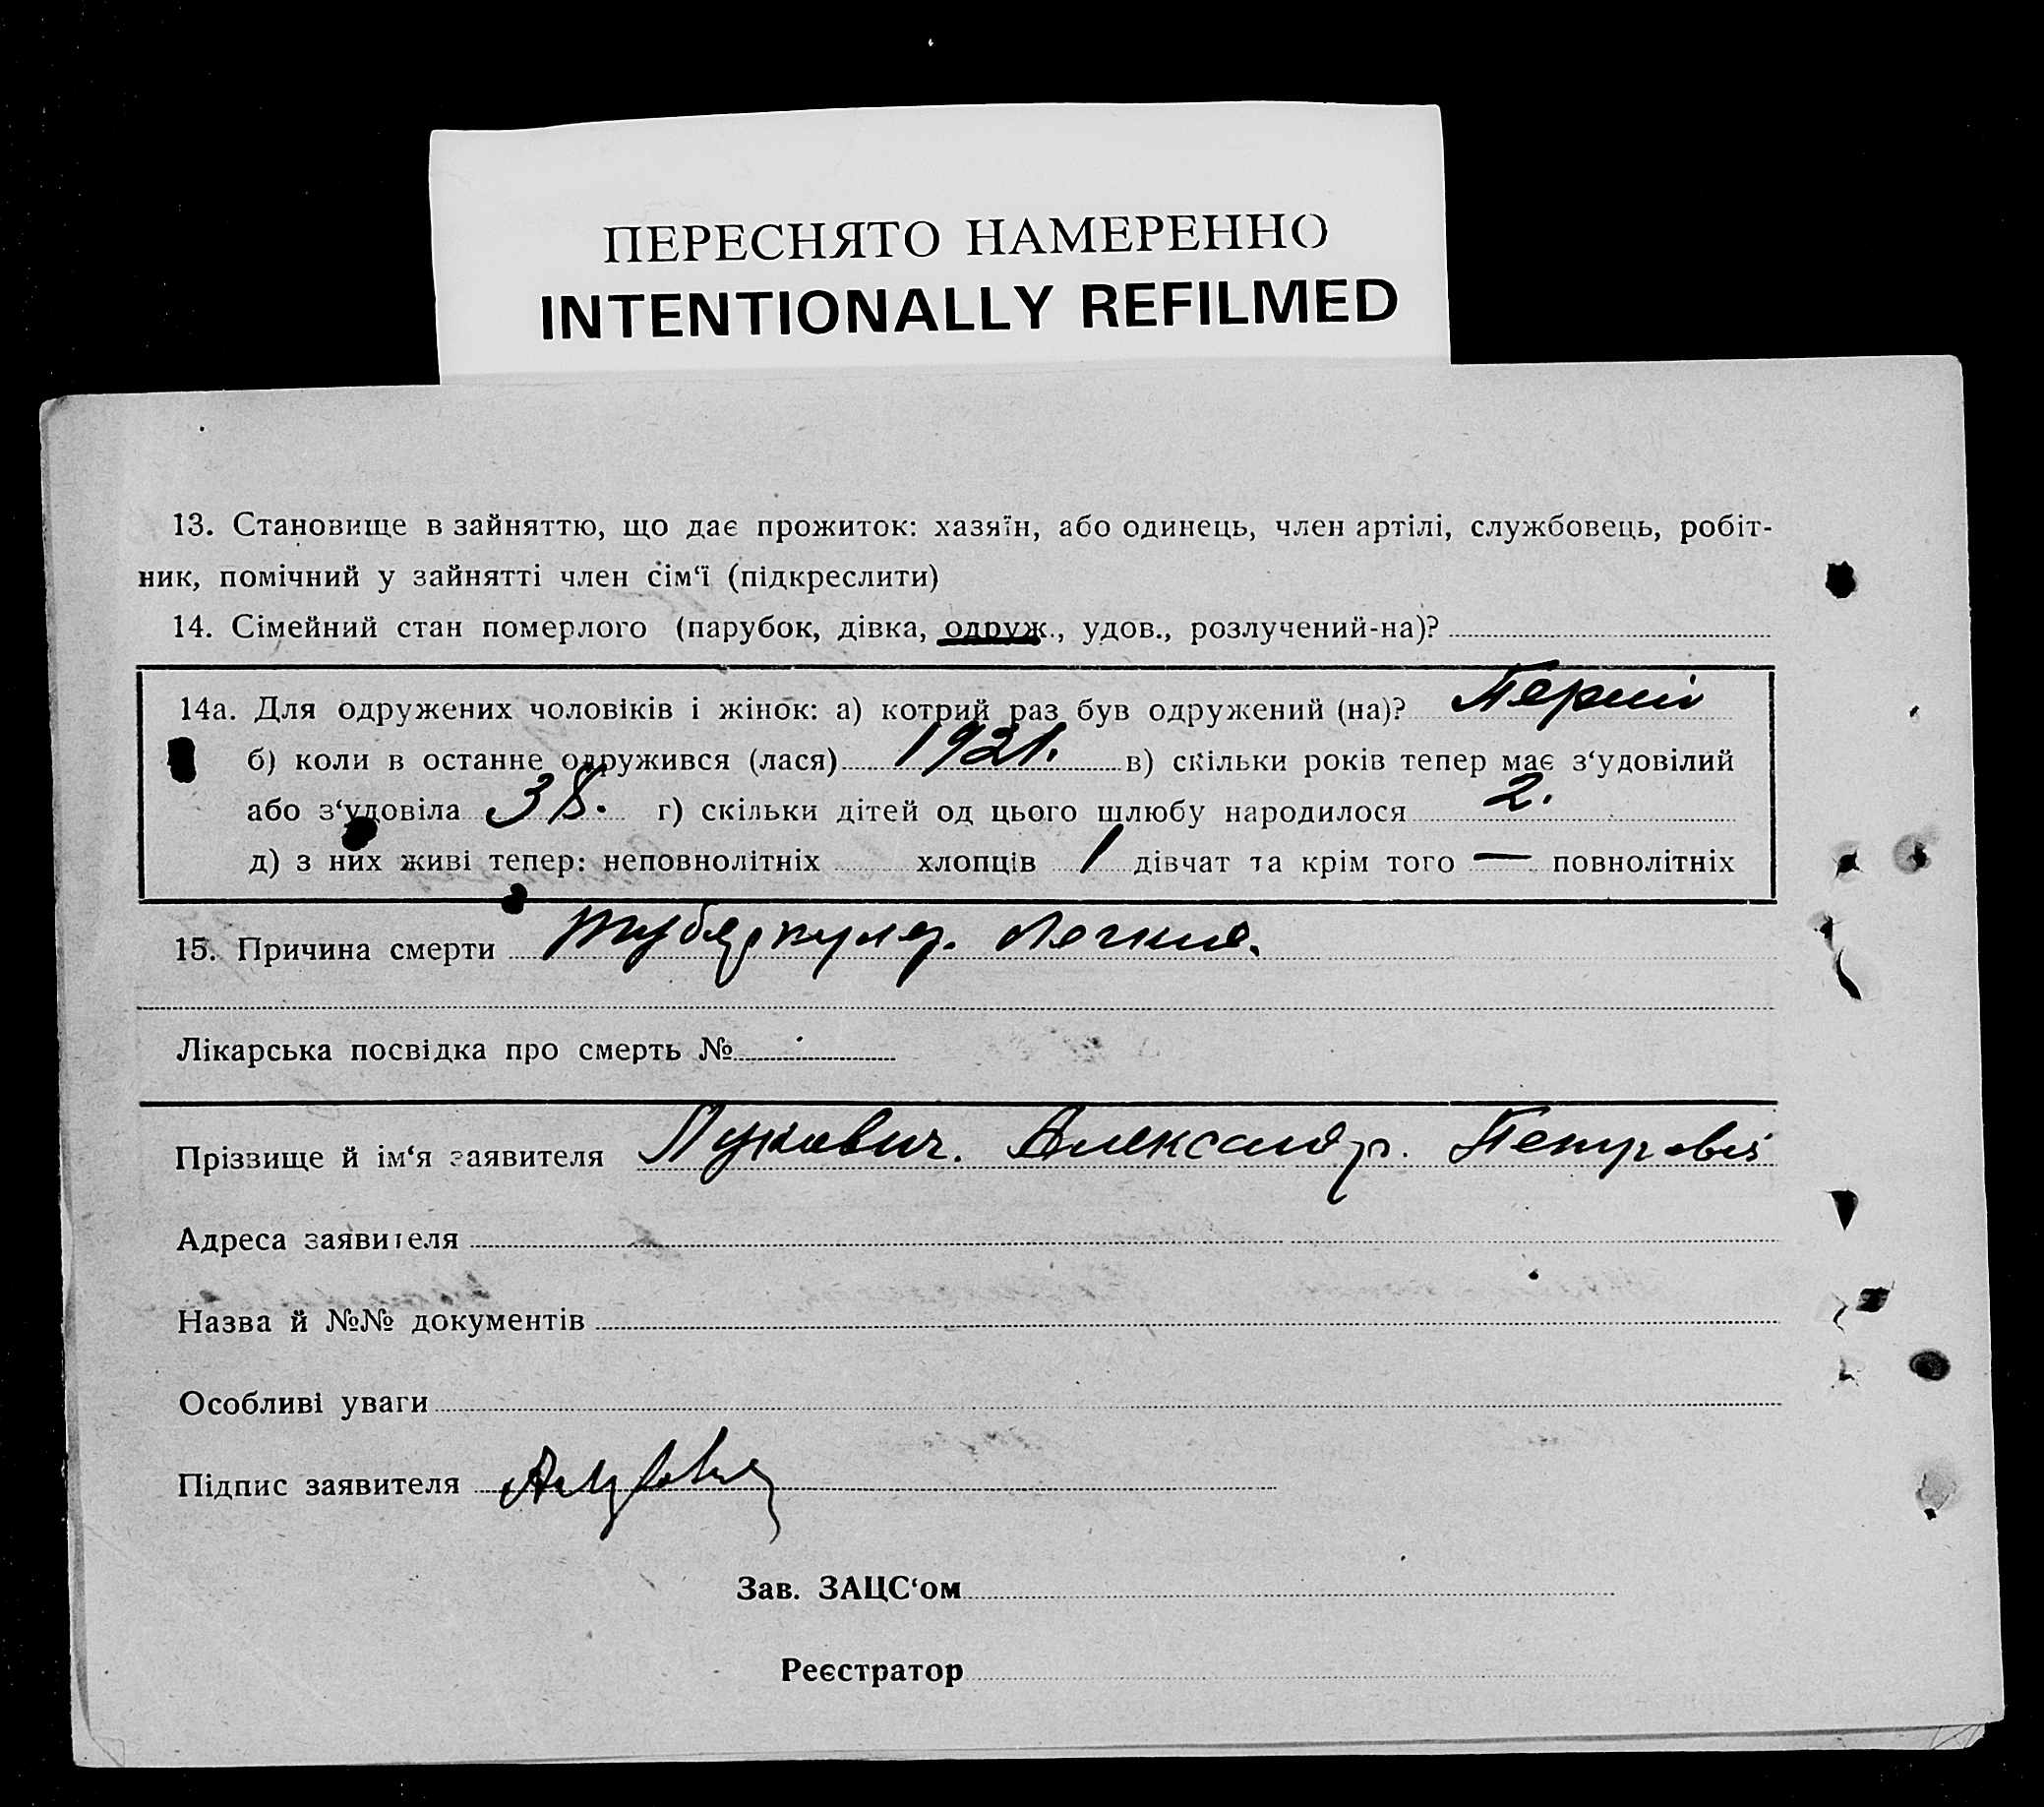 ПЕРЕСНЯТО НАМЕРЕННО
INTENTIONALLY REFILMED
13. Становище в зайняттю, що дає прожиток: хазяїн, або одинець, член артілі, службовець, робіт-
ник, помічний у зайнятті член сім‘ї (підкреслити)
14. Сімейний стан померлого (парубок, дівка, одруж., удов., розлучений-на)?
14а. Для одружених чоловіків і жінок: а) котрий раз був одружений (на)? Перший
б) коли в останне одружився (лася) 1921. в) скільки років тепер має з‘удовілий
або з‘удовіла 38. г) скільки дітей од цього шлюбу народилося 2.
д) з них живі тепер: неповнолітніх хлопців 1 дівчат та крім того — повнолітніх
15. Причина смерти Туберкулез. Легких.
Лікарська посвідка про смерть №
Прізвище й ім‘я заявителя Александр. Петрович
Адреса заявителя
Назва й №№ документів
Особливі уваги
Підпис заявителя
Зав. ЗАЦС‘ом
Реєстратор